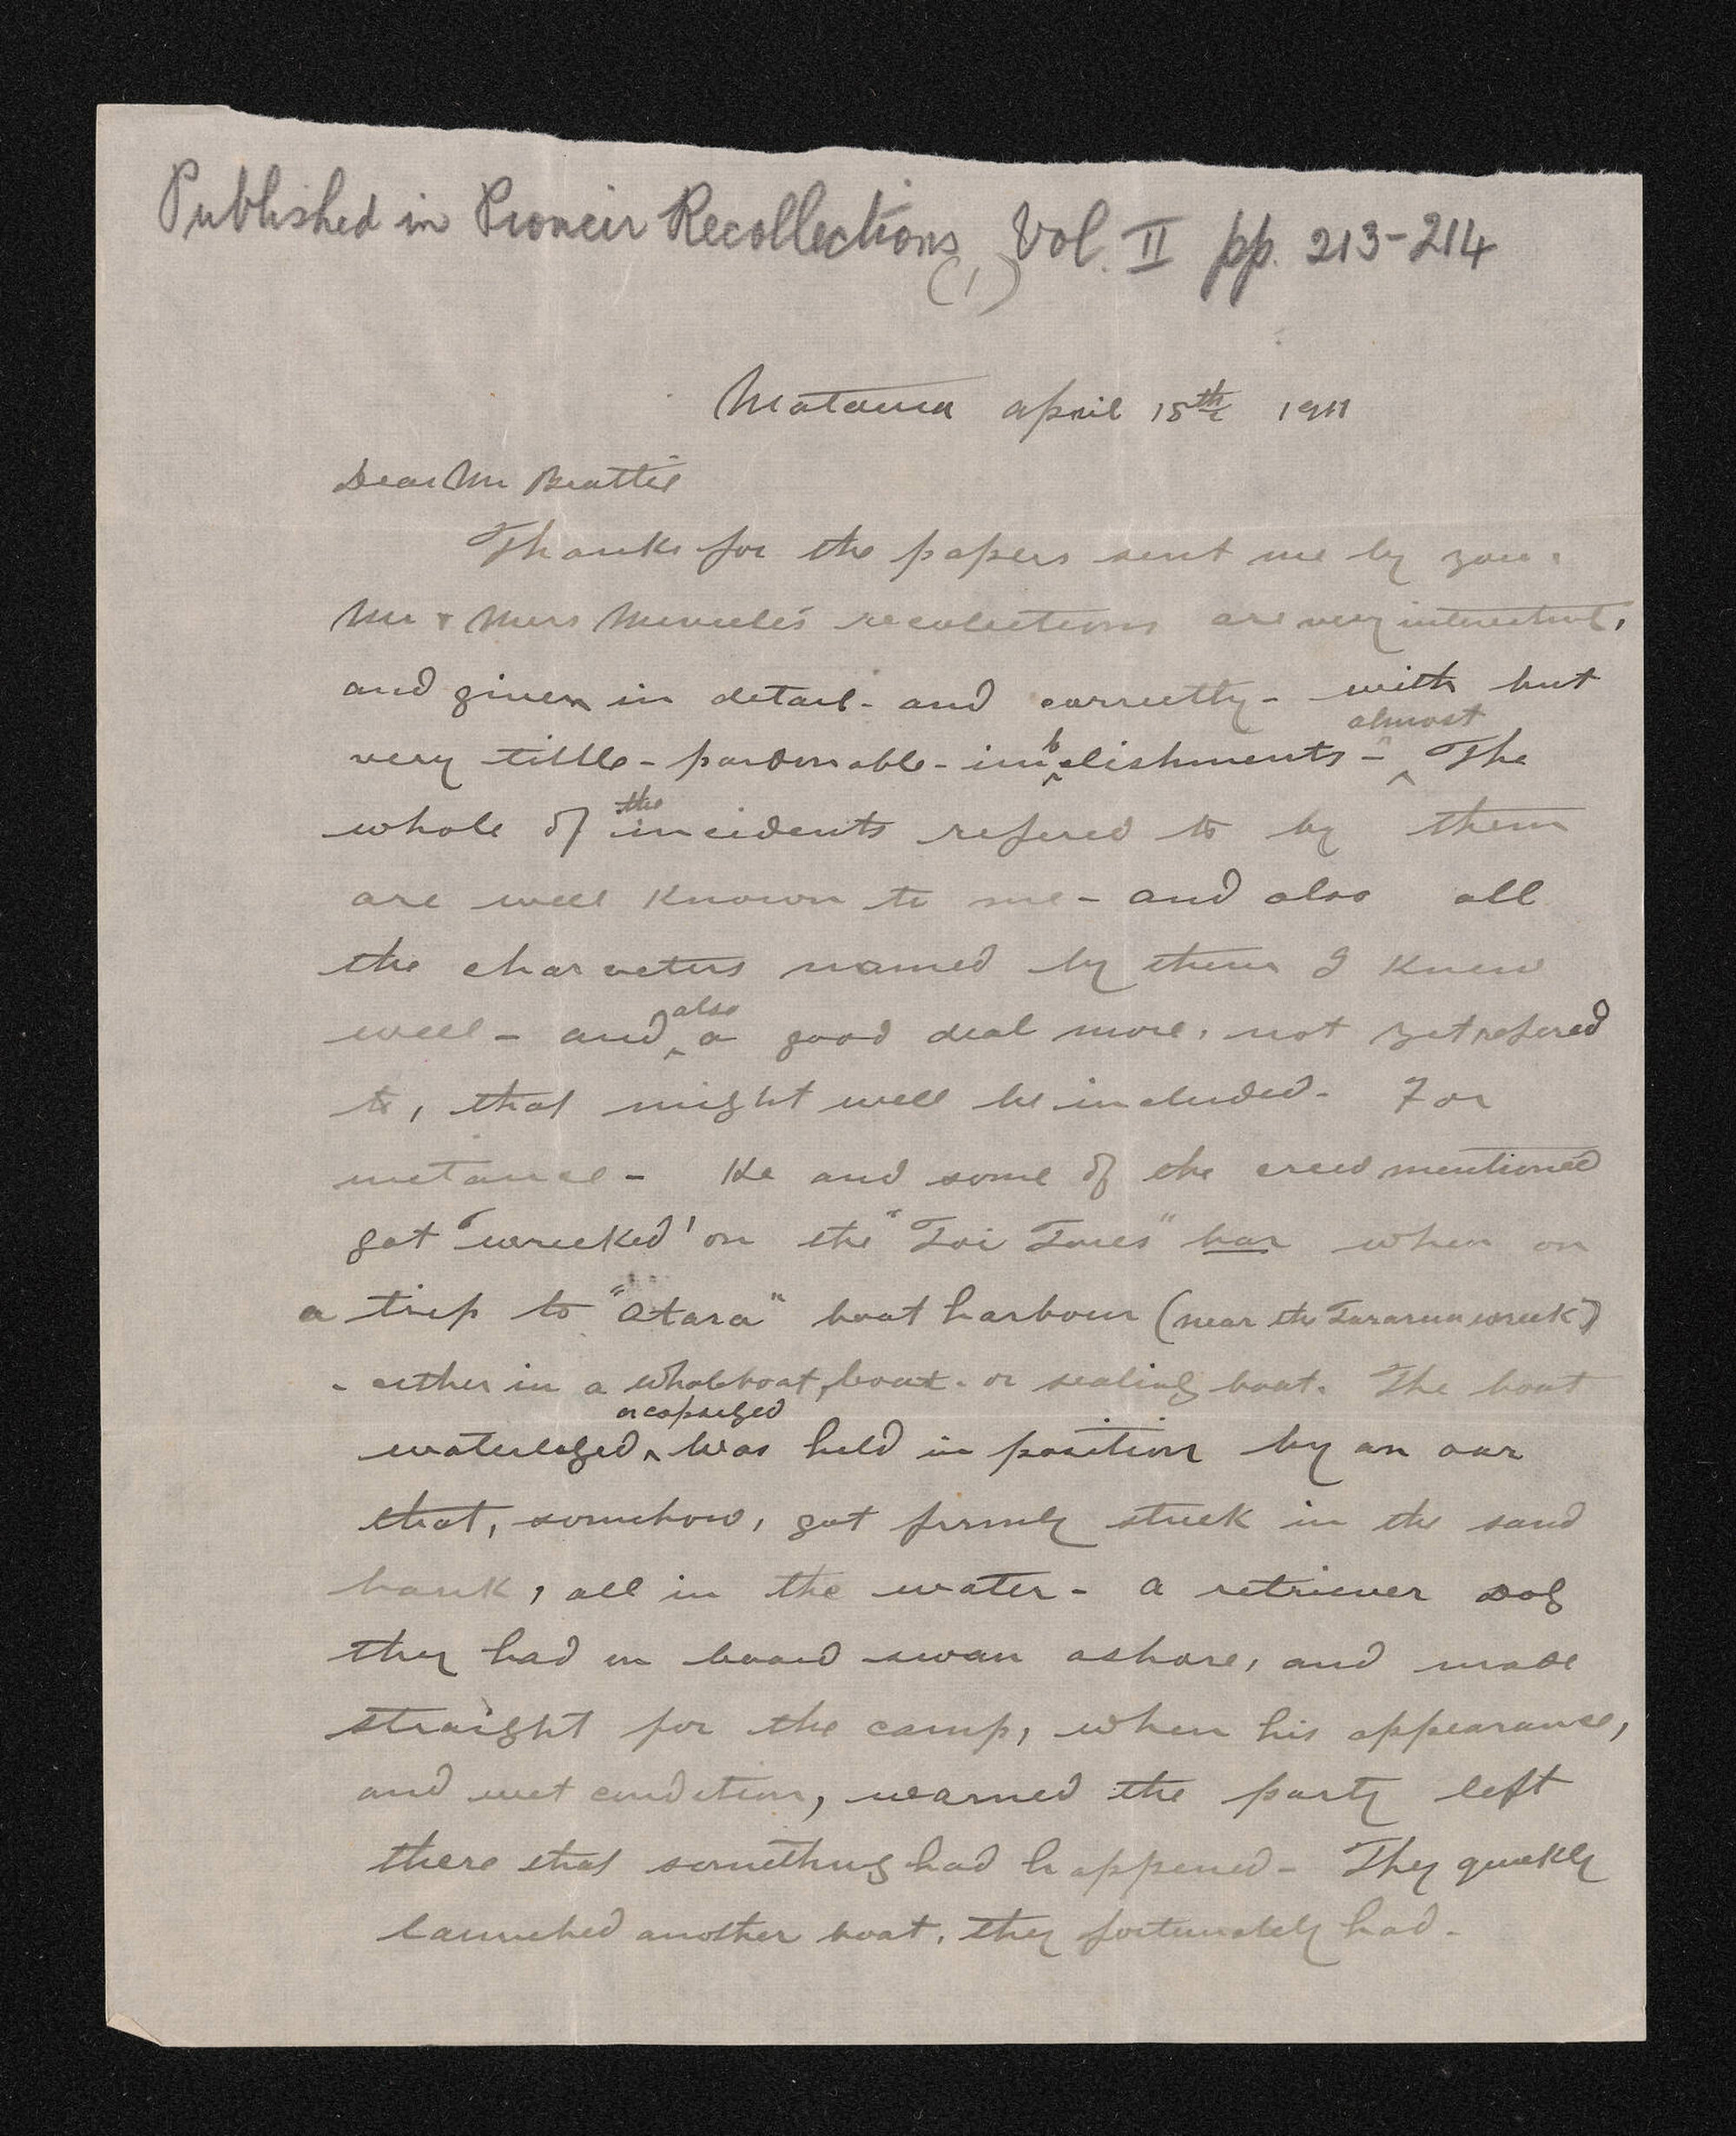 Published in Pioneer Recollections, Vol. II pp. 213-214
(1)
Mataura April 15th 1911
Dear Mr Beattie
Thanks for the papers sent me by you.
Mr & Mrs recolections are very interesting,
and given in detail - and correctly - with but
very little - pardonable - imbelishments - almost The
whole of the incidents refered to by them
are well known to me - and also all
the charaters named by them I knew
well - and also a good deal more, not yet refered
to, that might well be included. For
instance - He and some of the crew mentioned
got "wrecked' on the "Toi Toies" bar when on
a trip to "Otara" boat harbour (near the Tararua wreck)
- either in a whaleboat, boat - or sealing boat. The boat
waterloged or capsized was held in position by an oar
that, somehow, got firmly stuck in the sand
bank, all in the water - a retriever dog
they had on board swam ashore, and made
straight for the camp, when his appearance,
and wet condition, warned the party left
there that something had happened - They quickly
launched another boat, they fortunately had.